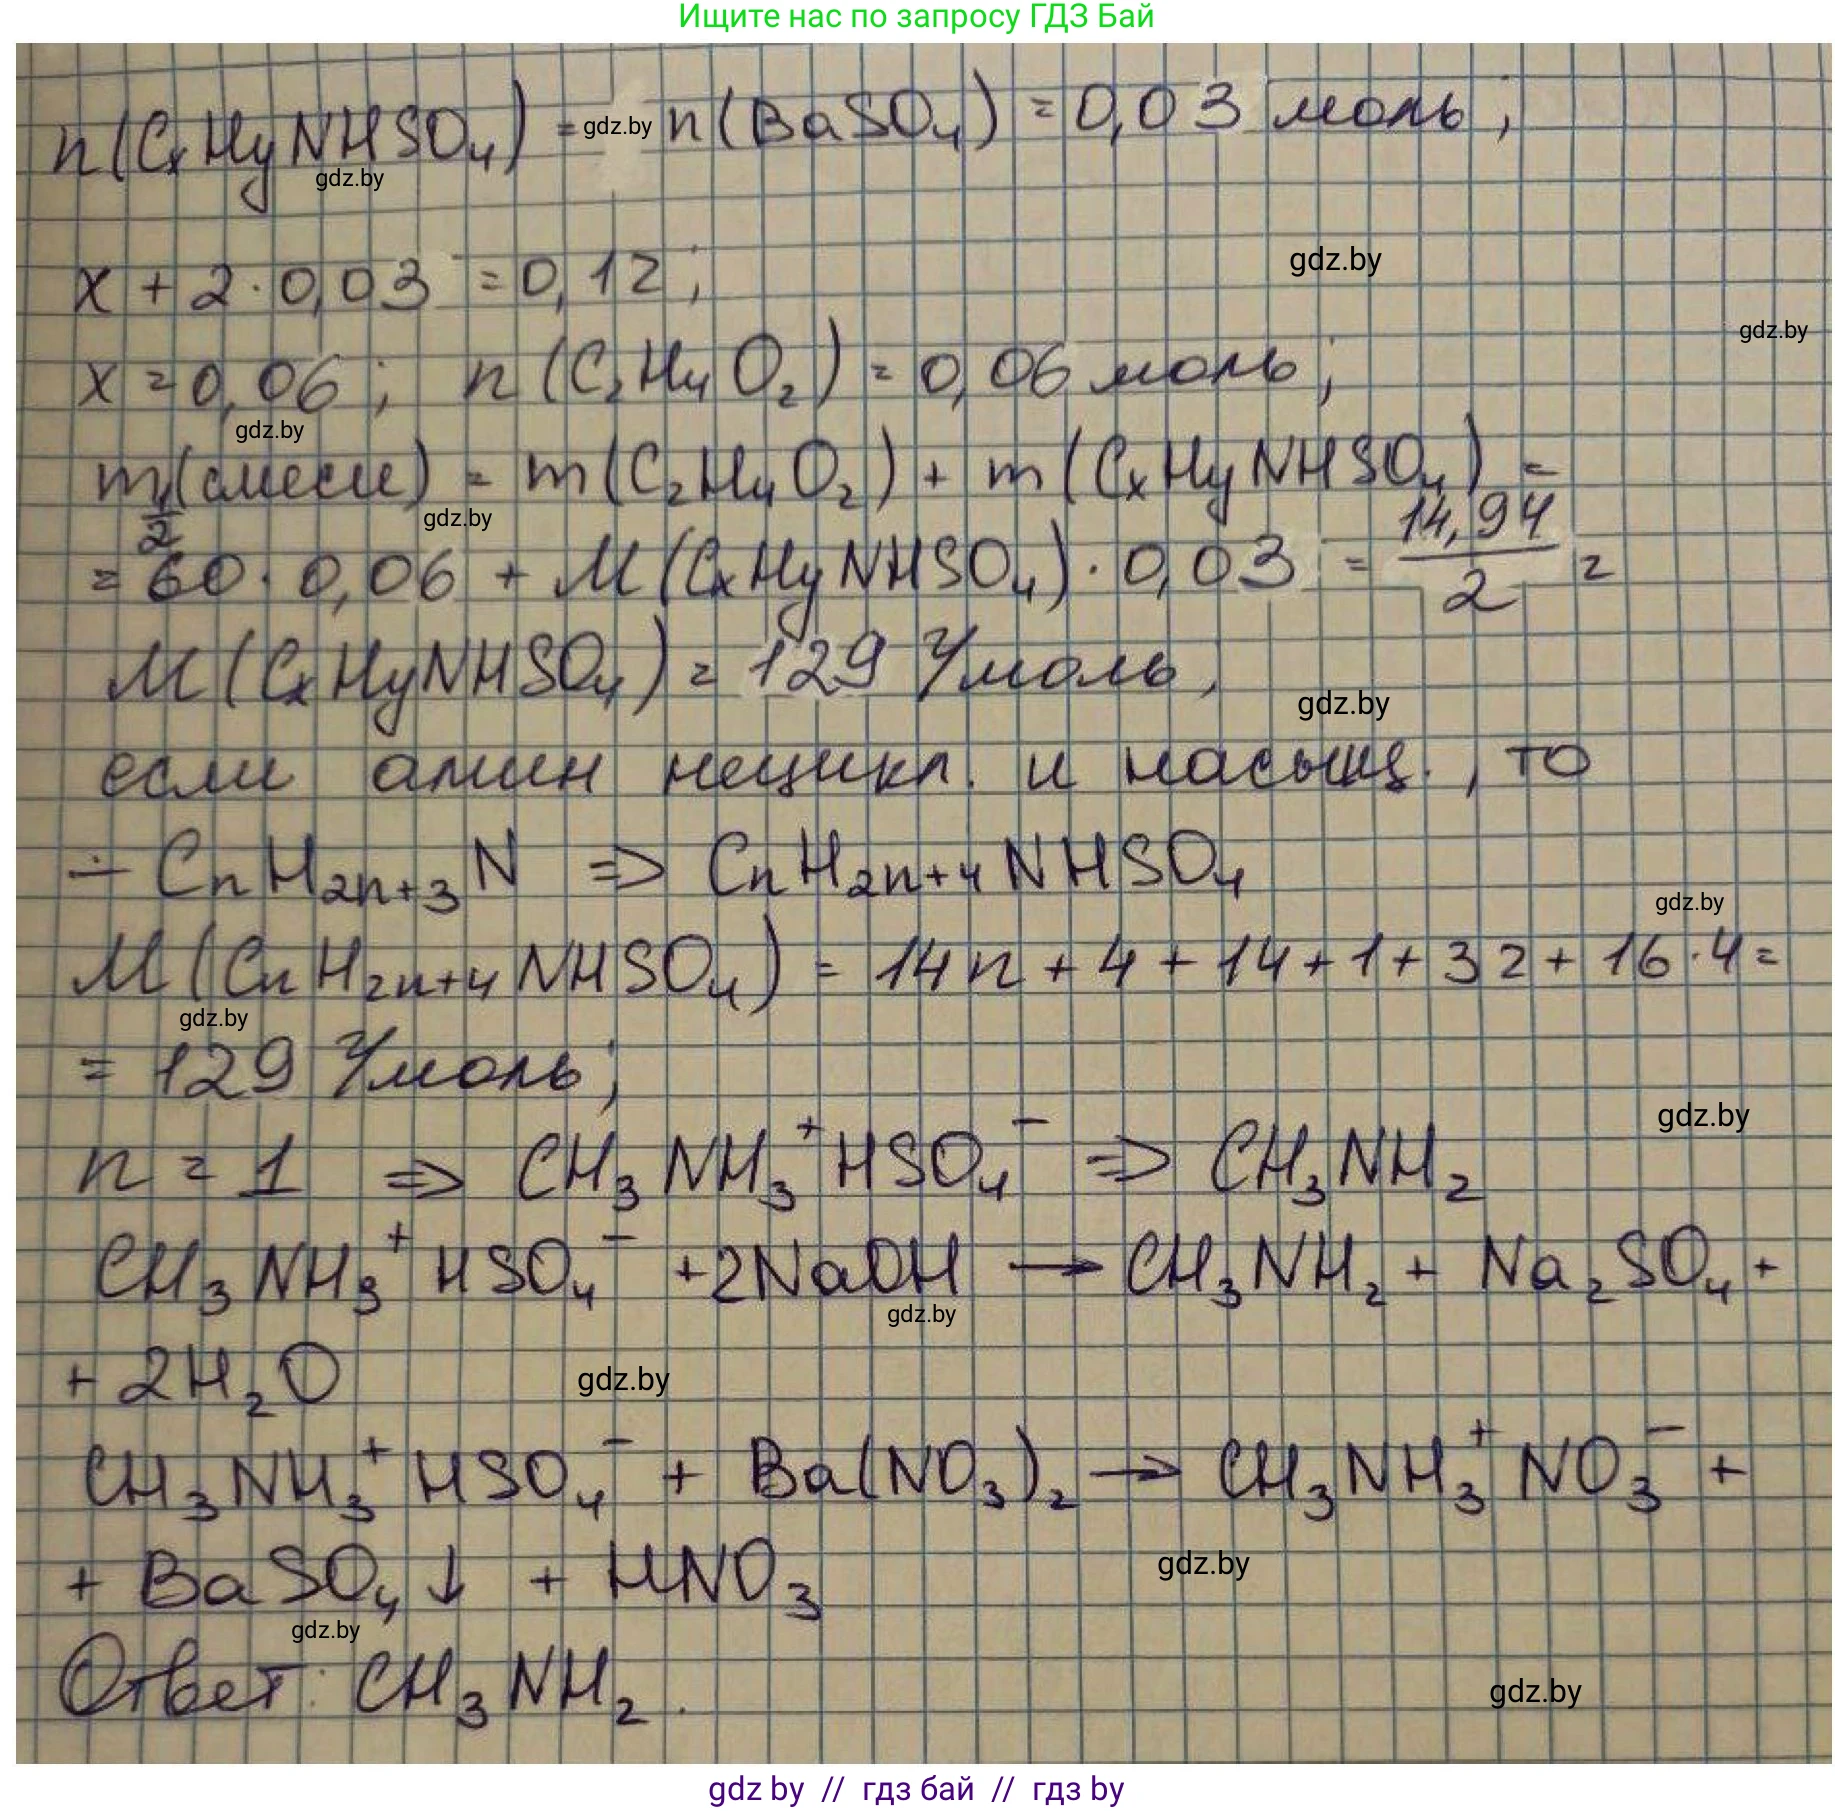 Ищите нас по запросу ГДЗ Бай
n(CxHyNHSO₄) = gdz.by n(BaSO₄) = 0,03 моль;
gdz.by
x + 2·0,03 = 0,12;
gdz.by
gdz.by
x = 0,06; n(C₂H₄O₂) = 0,06 моль;
gdz.by
m½(смеси) = m(C₂H₄O₂) + m(CxHyNHSO₄) =
gdz.by
= 60·0,06 + M(CxHyNHSO₄)·0,03 = 14,94/2 г
M(CxHyNHSO₄) = 129 г/моль,
gdz.by
если амин нецикл. и насыщ., то
– CnH₂n₊₃N => CnH₂n₊₄NHSO₄
gdz.by
M(CnH₂n₊₄NHSO₄) = 14n + 4 + 14 + 1 + 32 + 16·4 =
gdz.by
= 129 г/моль;
gdz.by
n = 1 => CH₃NH₃⁺HSO₄⁻ => CH₃NH₂
CH₃NH₃⁺HSO₄⁻ +2NaOH → CH₃NH₂ + Na₂SO₄ +
gdz.by
+ 2H₂O
gdz.by
CH₃NH₃⁺HSO₄⁻ + Ba(NO₃)₂ → CH₃NH₃⁺NO₃⁻ +
+ BaSO₄↓ + HNO₃
gdz.by
gdz.by
Ответ: CH₃NH₂.
gdz.by
gdz by // гдз бай // гдз by